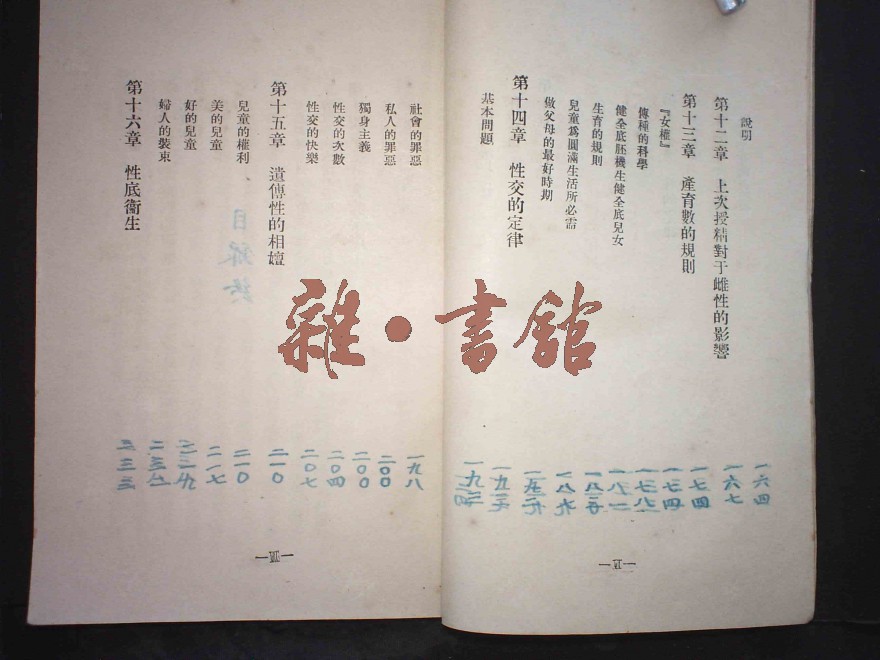 說明
第十二章 上次授精對于雌性的影響
第十三章 產育數的規則
『女權』
傳種的科學
健全底胚機生健全底兒女
生育的規則
兒童爲圓滿生活所必需
做父母的最好時期
第十四章 性交的定律
基本問題
一六四
一六七
一七四
一七四
一七八
一八二
社會的罪惡
私人的罪惡
獨身主義
性交的次數
性交的快樂
第十五章 遺傳性的相嬗
兒童的權利
美的兒童
好的兒童
婦人的裝束
第十六章 性底衞生
目錄終
一九八
二〇〇
二〇〇
二〇四
二〇七
二一〇
二一〇
二一七
二二九
二三三
雜·書館